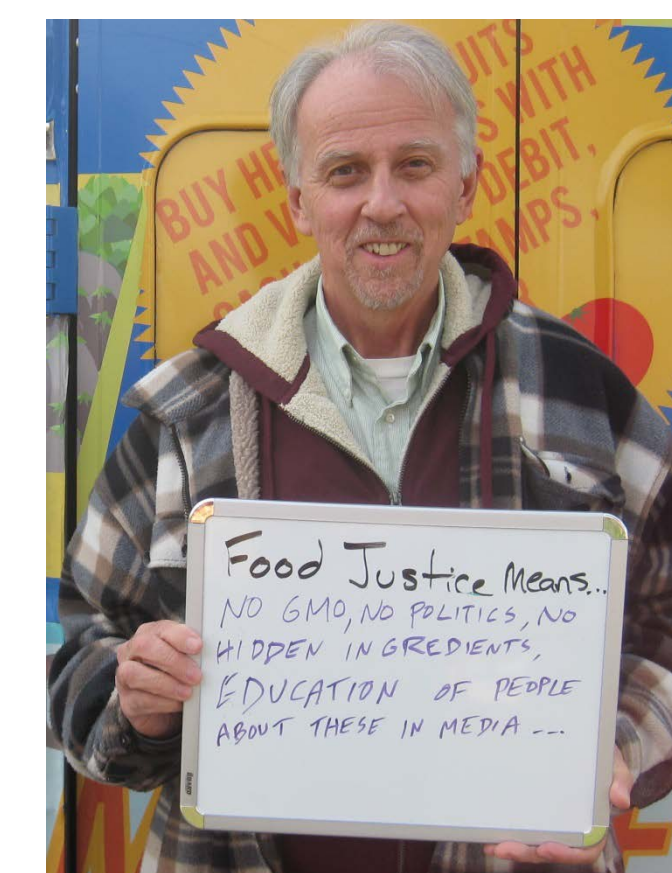 BUY HE UITS
AND V S WITH
DEBIT,
AMPS,
Food Justice Means...
NO GMO, NO POLITICS, NO
HIDDEN INGREDIENTS,
EDUCATION OF PEOPLE
ABOUT THESE IN MEDIA ---